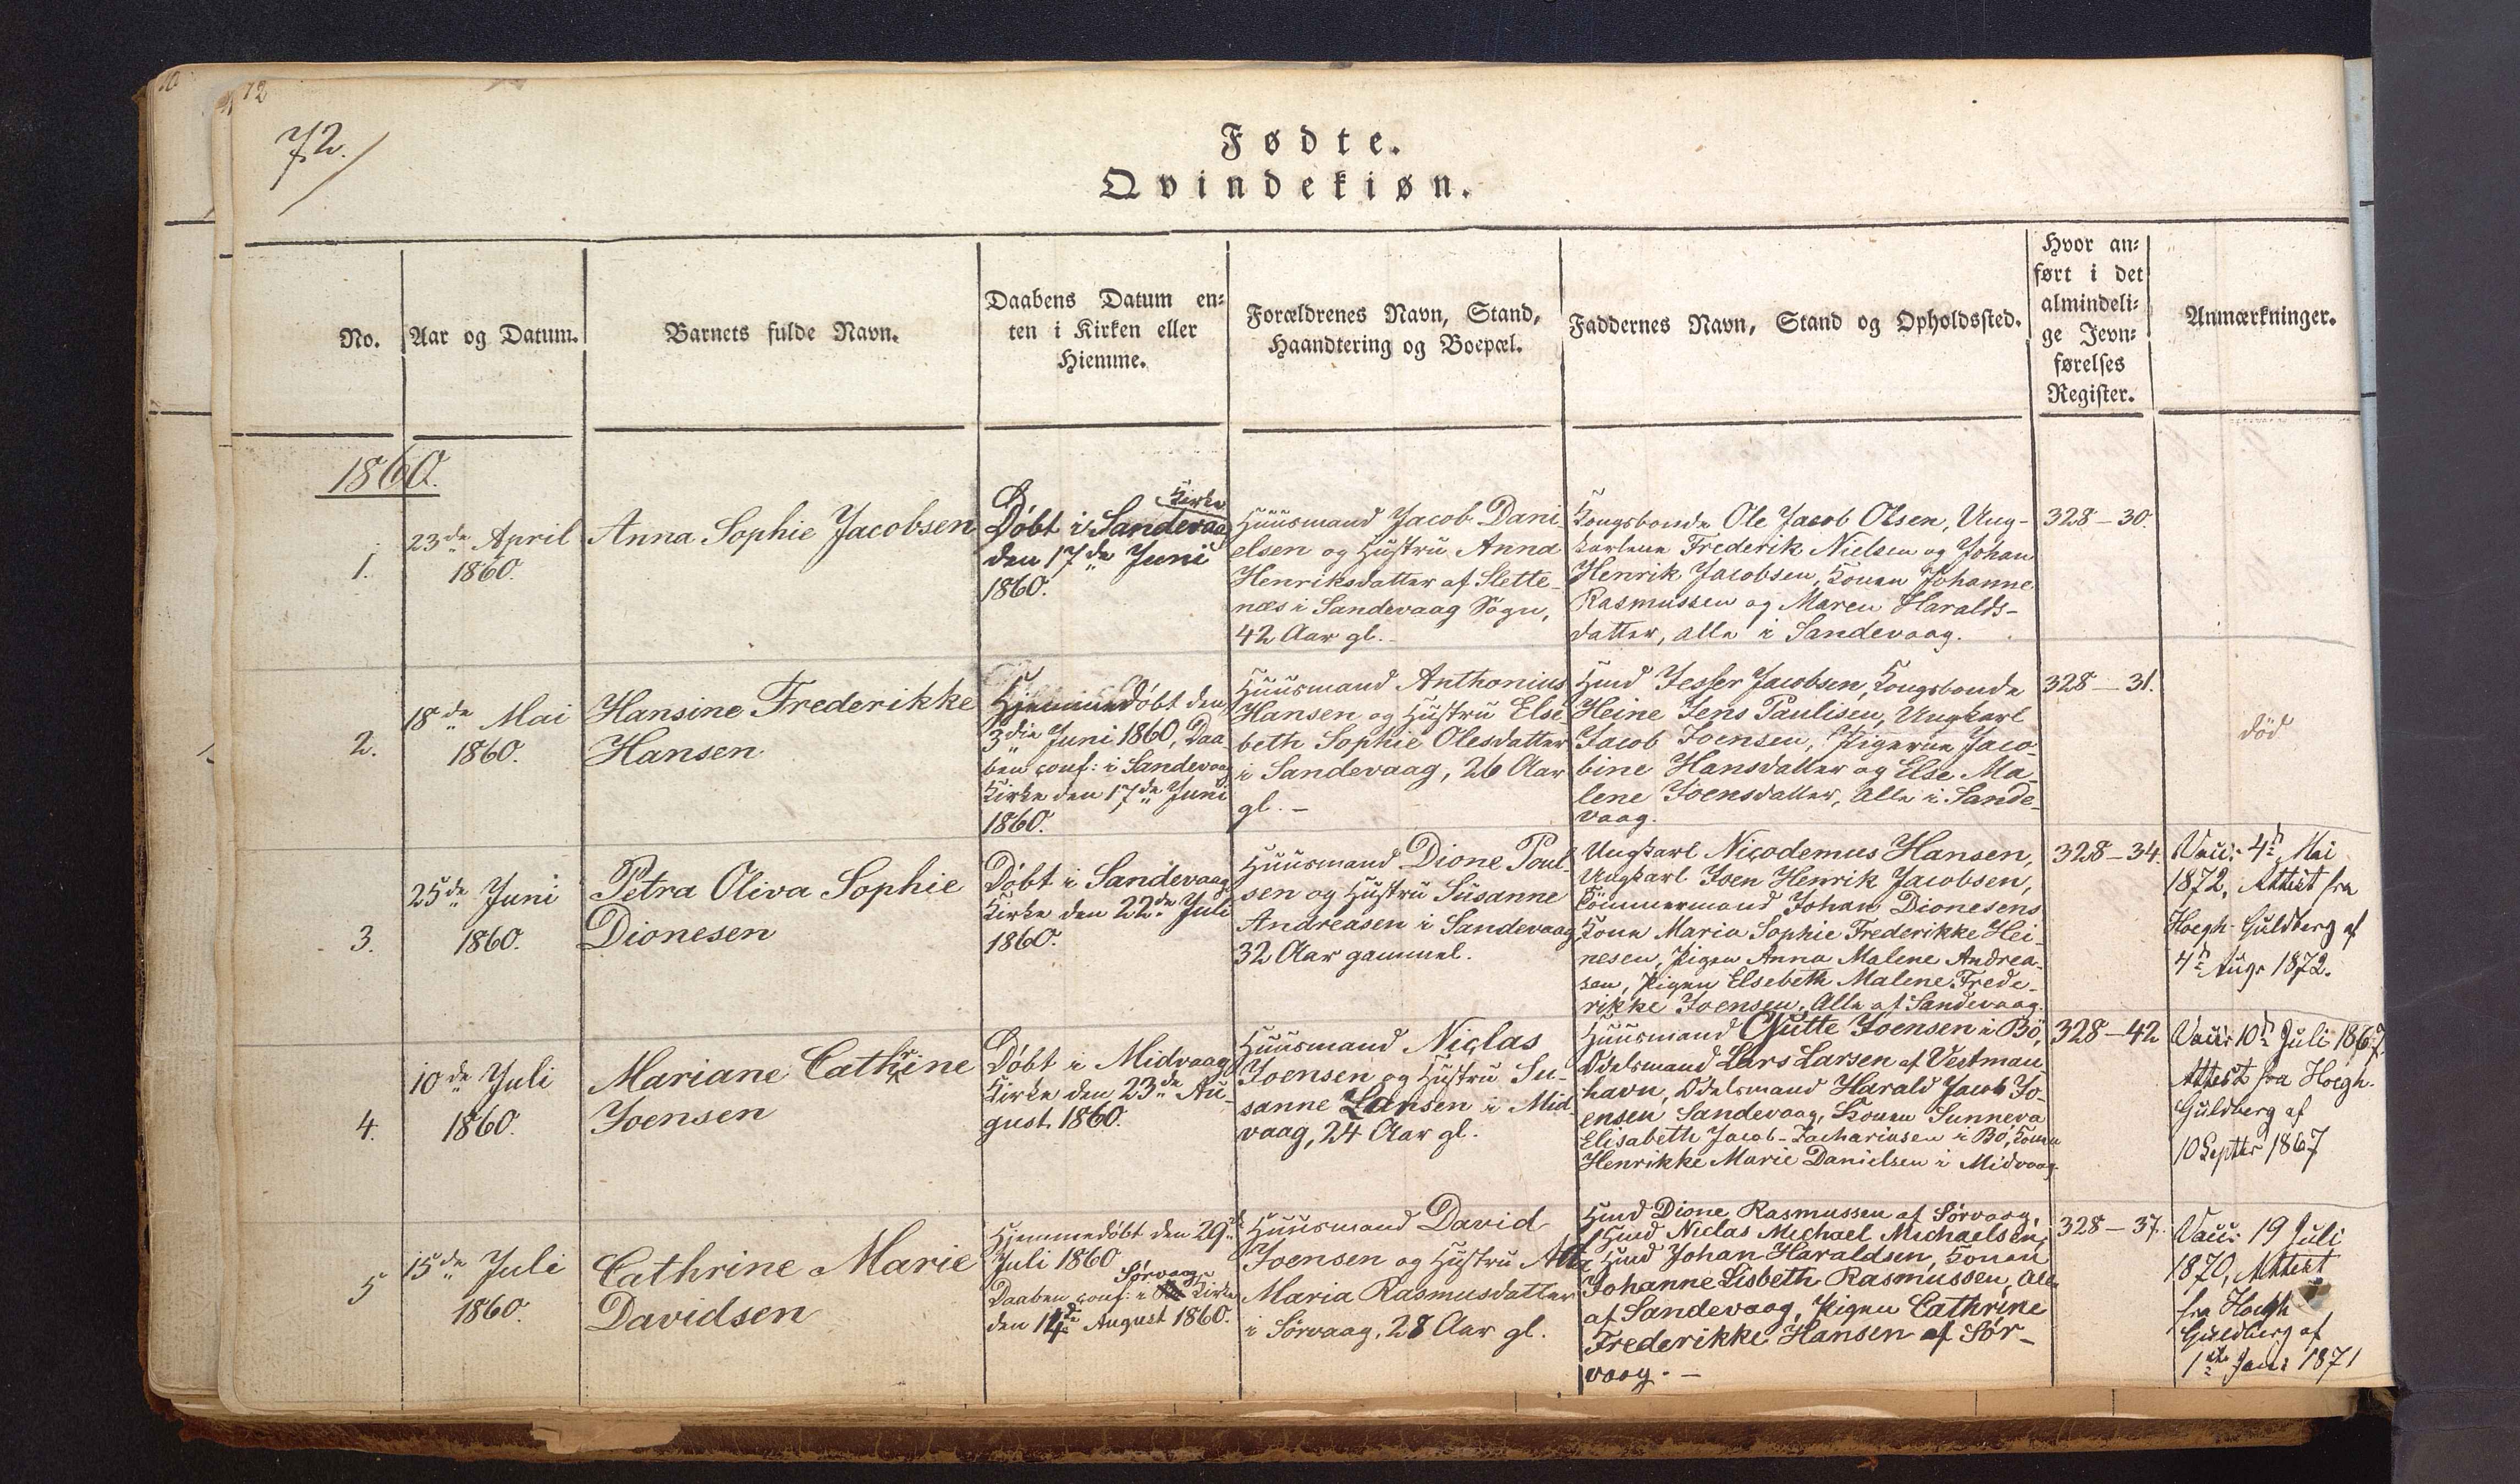 72
72./
Fødte.
Qvindekiøn.
No.
Aar og Datum.
Barnets fulde Navn.
Daabens Datum en-
ten i Kirken eller
Hiemme.
Forældrenes Navn, Stand,
Haandtering og Boepæl.
Faddernes Navn, Stand og Opholdssted.
Hvor an-
ført i det
almindeli-
ge Jevn-
førelses
Register.
Anmærkninger.
1860.
1.
23de April
1860.
Anna Sophie Jacobsen
Kirke
Döbt i Sandevaag
den 17de Juni
1860.
Huusmand Jacob Dani-
elsen og Hustru Anna
Henriksdatter af Slette-
næs i Sandevaag Sogn,
42 Aar gl.-
Kongsbonde Ole Jacob Olsen, Ung-
karlene Frederik Nielsen og Johan
Henrik Jacobsen, Konen Johanne
Rasmussen og Maren Haralds-
datter, alle i Sandevaag.
328-30.
2.
18de Mai
1860.
Hansine Frederikke
Hansen
Hjemmedöbt den
3die Juni 1860, Daa
ben conf: i Sandevaag
Kirke den 17de Juni
1860.
Huusmand Anthonius
Hansen og Hustru Else
beth Sophie Olesdatter
i Sandevaag, 26 Aar
gl.-
Hmd Jesper Jacobsen, Kongsbonde
Heine Jens Paulisen, Ungkarl
Jacob Joensen, Pigerne Jaco-
bine Hansdatter og Else Ma-
lene Joensdatter, Alle i Sande-
vaag.
328-31.
död
3.
25de Juni
1860.
Petra Oliva Sophie
Dionesen
Döbt i Sandevaag
Kirke den 22de Juli
1860.
Huusmand Dione Poul-
sen og Hustru Susanne
Andreasen i Sandevaag,
32 Aar gammel.
Ungkarl Nicodemus Hansen,
Ungkarl Joen Henrik Jacobsen,
Tömmermand Johan Dionesens
Kone Maria Sophie Frederikke Hei-
nesen, Pigen Anna Malene Andrea-
sen, Pigen Elsebeth Malene Frede-
rikke Joensen, Alle af Sandevaag.
328-34.
Vacc: 4de Mai
1872, Attest fra
Hoegh-Guldberg af
4de Aug: 1872.
4.
10de Juli
1860.
Mariane Cathrine
Joensen
Döbt i Midvaag
Kirke den 23de Au-
gust 1860.
Huusmand Niclas
Joensen og Hustru Su-
sanne Larsen i Mid-
vaag, 24 Aar gl.
Huusmand Gutte Joensen i Bö,
Odelsmand Lars Larsen af Vestman-
havn, Odelsmand Harald Jacob Jo-
ensen Sandevaag, Konen Sunneva
Elisabeth Jacob-Zachariasen i Bö, Konen
Henrikke Marie Danielsen i Midvaag.
328-42
Vacc: 10de Juli 1867.
Attest fra Hoegh-
Guldberg af
10 Septbr 1867
5
15de Juli
1860.
Cathrine Marie
Davidsen
Hjemmedöbt den 29de
Juli 1860
Sörvaag
Daaben conf: i Kirke
den 14de August 1860.
Huusmand David
Joensen og Hustru
Maria Rasmusdatter
i Sörvaag, 28 Aar gl.
Hmd Dione Rasmussen af Sörvaag,
Hmd Niclas Michael Michaelsen,
Hmd Johan Haraldsen, Konen
Johanne Lisbeth Rasmussen, Alle
af Sandevaag, Pigen Cathrine
Frederikke Hansen af Sör-
vaag.-
328-37.
Vacc: 19 Juli
1870, Attest
fra Hoegh
Guldberg af
1ste Jan: 1871